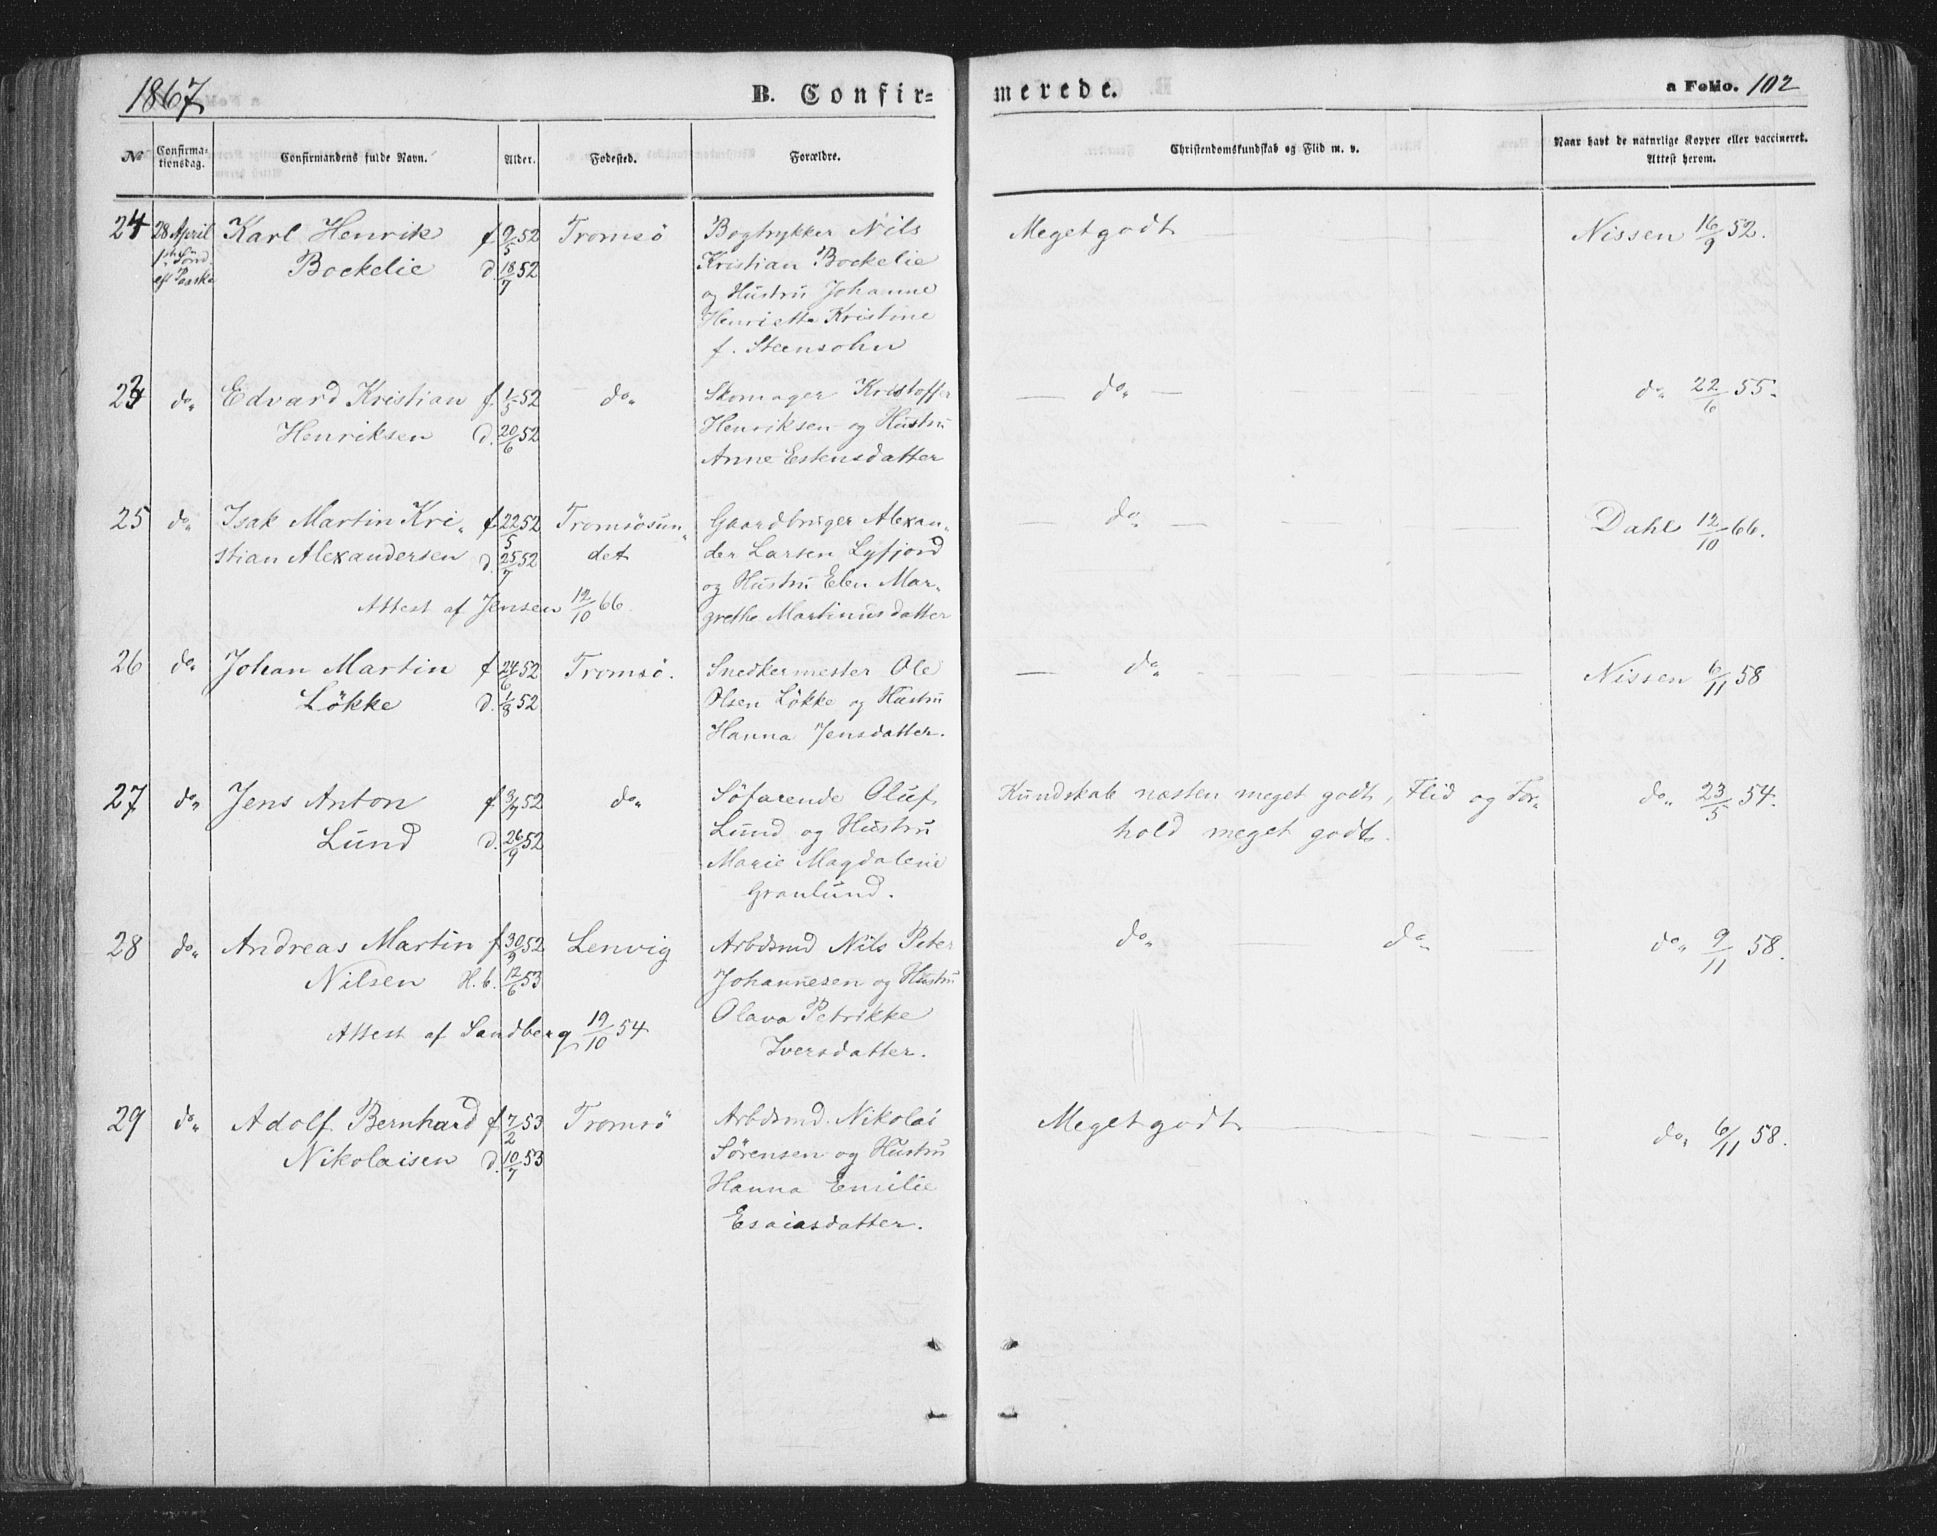 1867 B. Confir= merede. a Folio. 102
No Confirma-tionsdag. Confirmandens fulde Navn. Alder. Fødested. Forældre. Christendomskundskab og Flid m. v. Naar havt de naturlige Kopper eller vaccineret. Attest herom.
24 28 April Karl Henrik f. 9/5 52 Tromsö Bogtrykker Nils Meget godt Nissen 16/9 52.
1ste Sönd. Bockelie d. 18/7 52 Kristian Bockelie
eft Paaske og Hustru Johanne
Henriette Kristine
f. Steensohn
23 do„ Edvard Kristian f. 1/5 52 do„ Skomager Kristoffer — do„ — do„ 22/6 55.
Henriksen d. 20/6 52 Henriksen og Hustru
Anne Estensdatter
25 do„ Isak Martin Kri„ f. 22/5 52 Tromsösun„ Gaardbruger Alexan„ — do„ — Dahl 12/10 66.
stian Alexandersen d. 25/7 52 det der Larsen Lyfjord
og Hustru Elen Mar„
Attest af Jensen 12/10 66. grethe Martinusdatter
26 do„ Johan Martin f. 24/6 52 Tromsö. Snedkermester Ole — do„ — Nissen 6/11 58
Lökke d. 1/8 52 Olsen Lökke og Hustru
Hanna Jensdatter.
27 do„ Jens Anton f. 3/7 52 do„ Söfarende Oluf Kundskab næsten meget godt, Flid og For„ do„ 23/5 54.
Lund d. 26/9 52 Lund og Hustru hold meget godt.
Marie Magdalene
Granlund.
28 do„ Andreas Martin f. 30/9 52 Lenvig Arbdsmd Nils Peter do„ — do„ — do„ 9/11 58.
Nilsen H. b. 12/6 53 Johannesen og Hustru
Attest af Sandberg 19/10 54 Olava Petrikke
Iversdatter.
29 do„ Adolf Bernhard f. 7/2 53 Tromsö Arbdsmd. Nikolai Meget godt do„ 6/11 58.
Nikolaisen d. 10/7 53 Sörensen og Hustru
Hanna Emilie
Esaiasdatter.